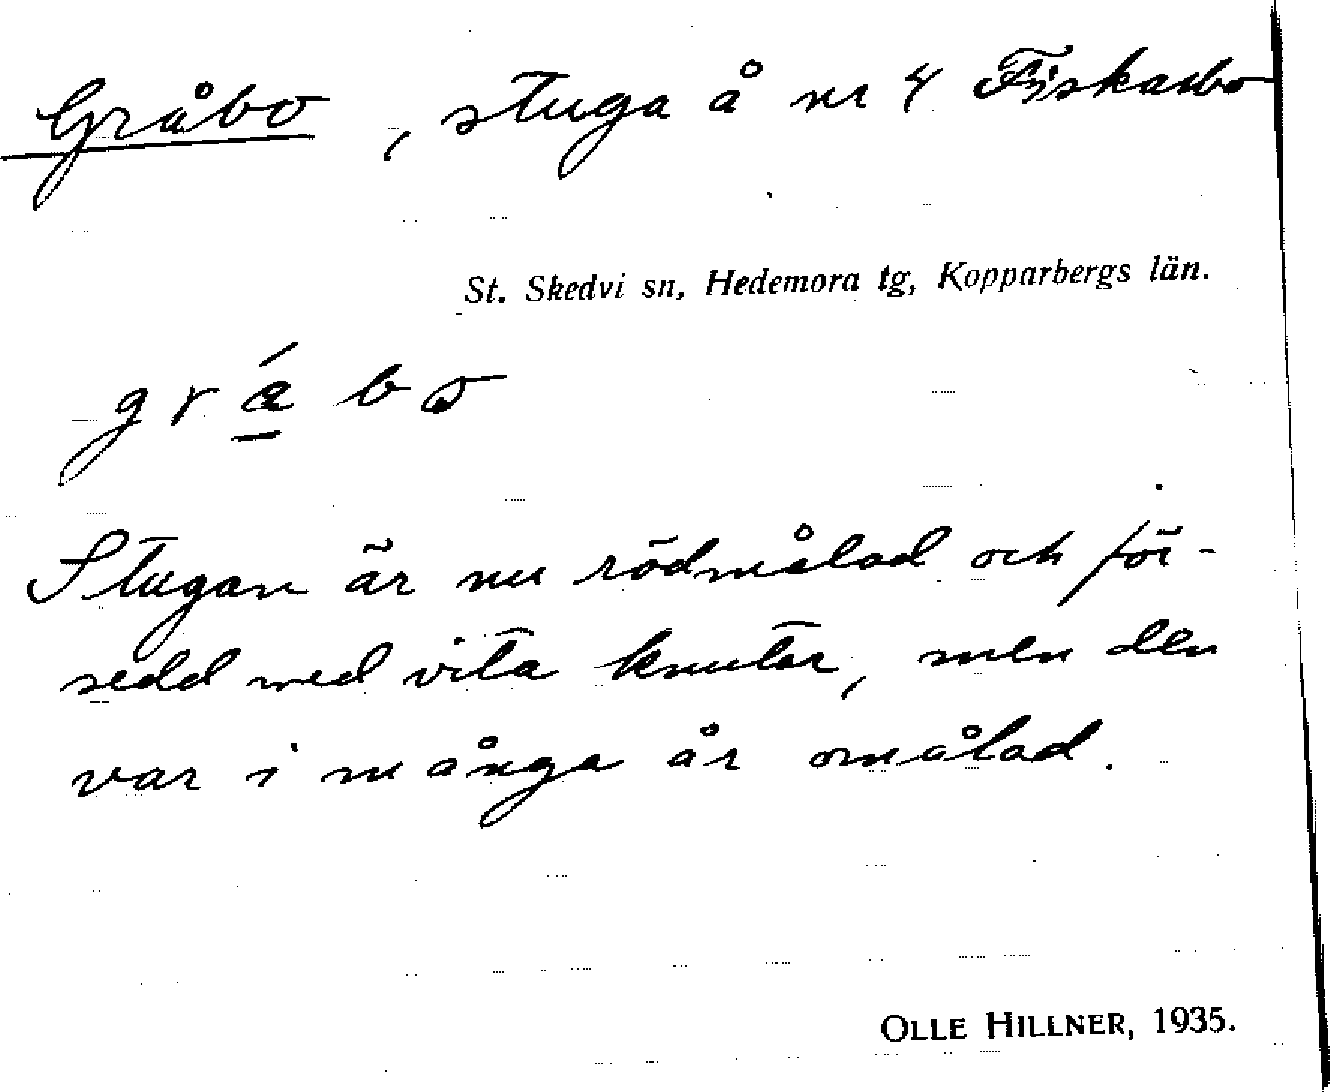 Gråbo, stuga å nr 4 Fiskarbo
St. Skedvi sn, Hedemora tg, Kopparbergs län.
Stugan är nu rödmålad och för-
sedd med vita knutar, men den
var i många år omålad.
OLLE HILLNER, 1935.